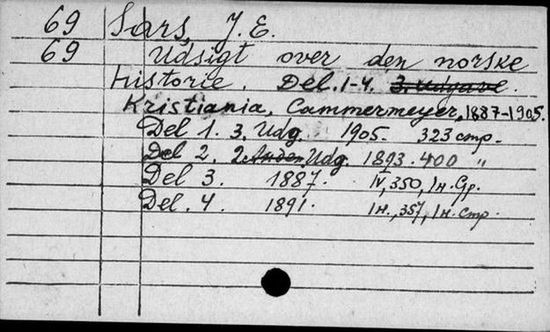 69 Sars, J. E.
69 Udsigt over den norske
historie. Del. 1-4. 3. udgave.
Kristiania, Cammermeyer, 1887-1905.
Del 1. 3. Udg. 1905. 323 стр.
Del 2. 2 Anden Udg. 1893. 400 "
Del 3. 1887. IV, 350, 1 н. стр.
Del. 4. 1891. 1 н., 357, 1 н. стр.